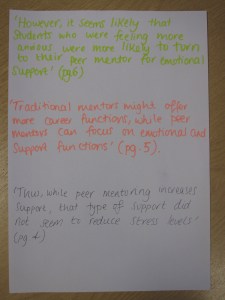 'However, it seems likely that
students who were feeling more
anxious were more likely to turn
to their peer mentor for emotional
support' (pg6)
'Traditional mentors might offer
more career functions, while peer
mentors can focus on emotional and
support functions' (pg.5).
'Thus, while peer mentoring increases
support, that type of support did
not seem to reduce stress levels'
(pg 4)